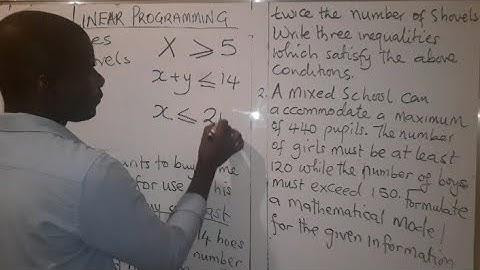 LINEAR PROGRAMMING
x ≥ 5
x + y ≤ 14
x ≤ 2
to buy
for use
his
14 hoes
number
twice the number of Shovels
Write three inequalities
which satisfy the above
conditions.
2. A mixed School can
accommodate a maximum
of 440 pupils. The number
of girls must be at least
120 while the number of boys
must exceed 150. Formulate
a mathematical Model
for the given Information